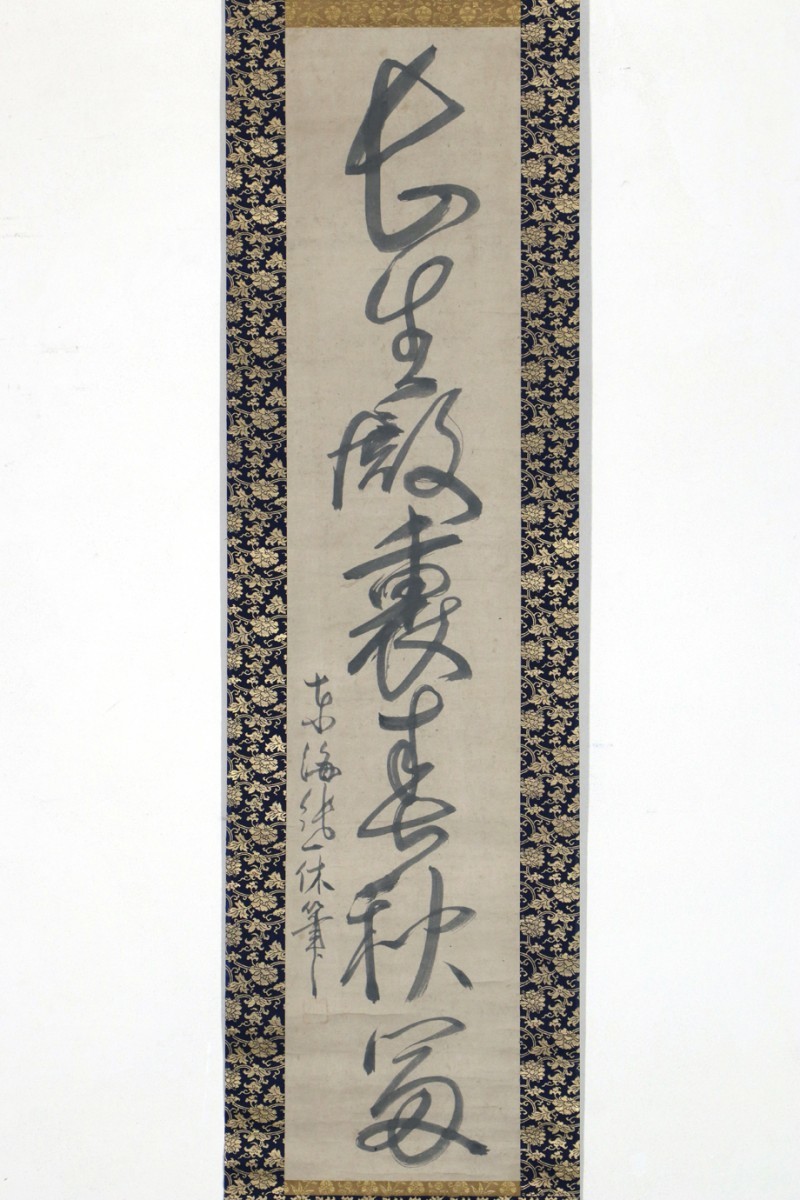 長生殿裏春秋富
東海純一休筆